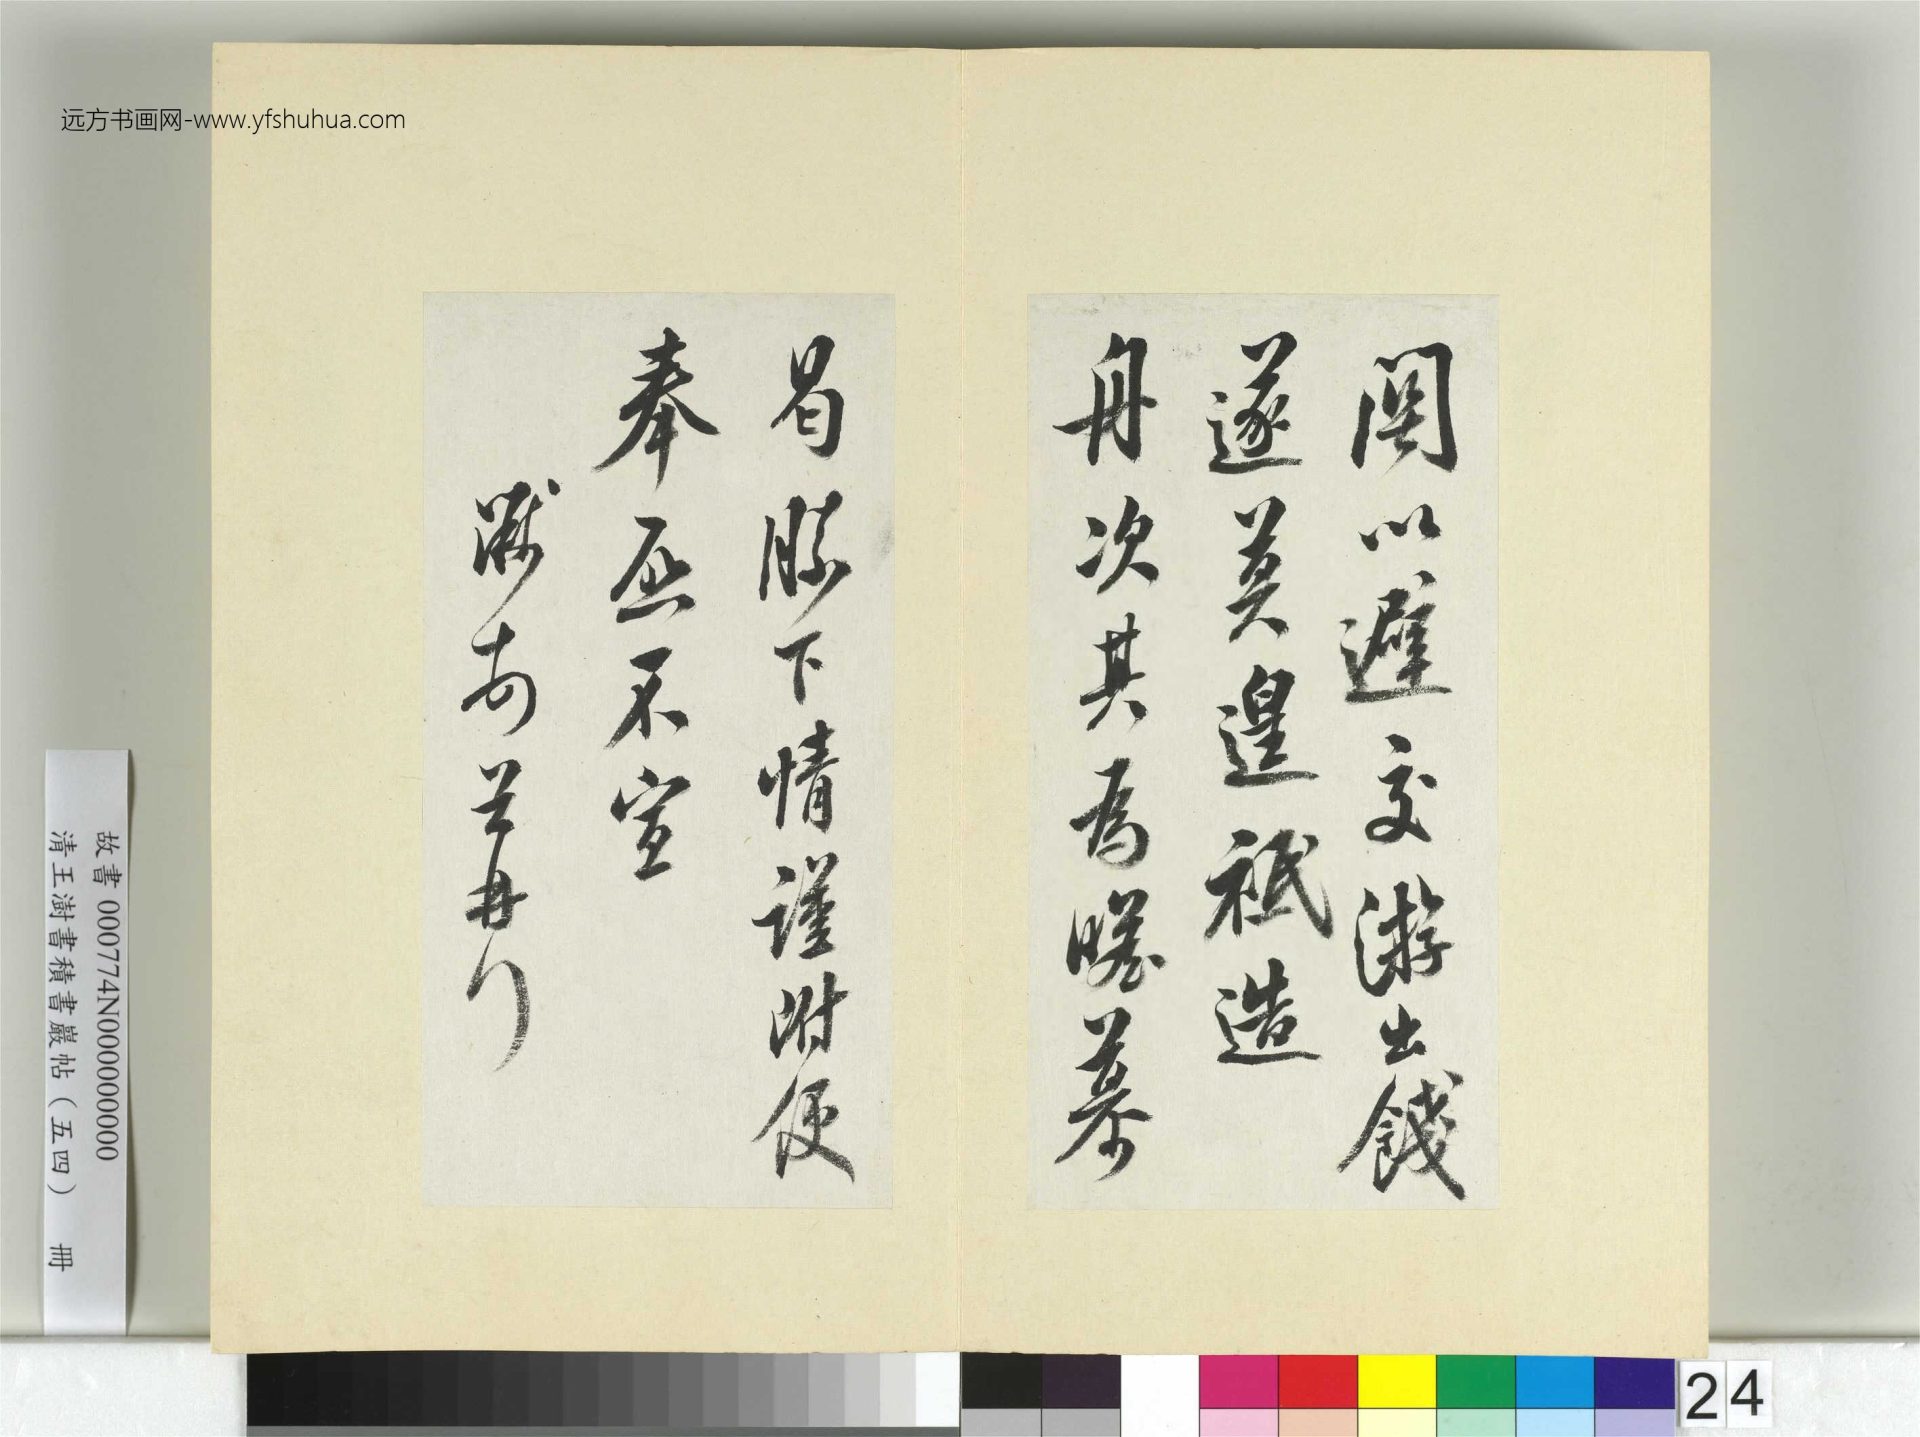 远方书画网-www.yfshuhua.com
関以避交游出餞
遂莫遑祗造
舟次其為瞻慕
曷勝下情謹附便
奉不宣
故書 000774N000000000
清王澍書積書巖帖(五四) 冊
24